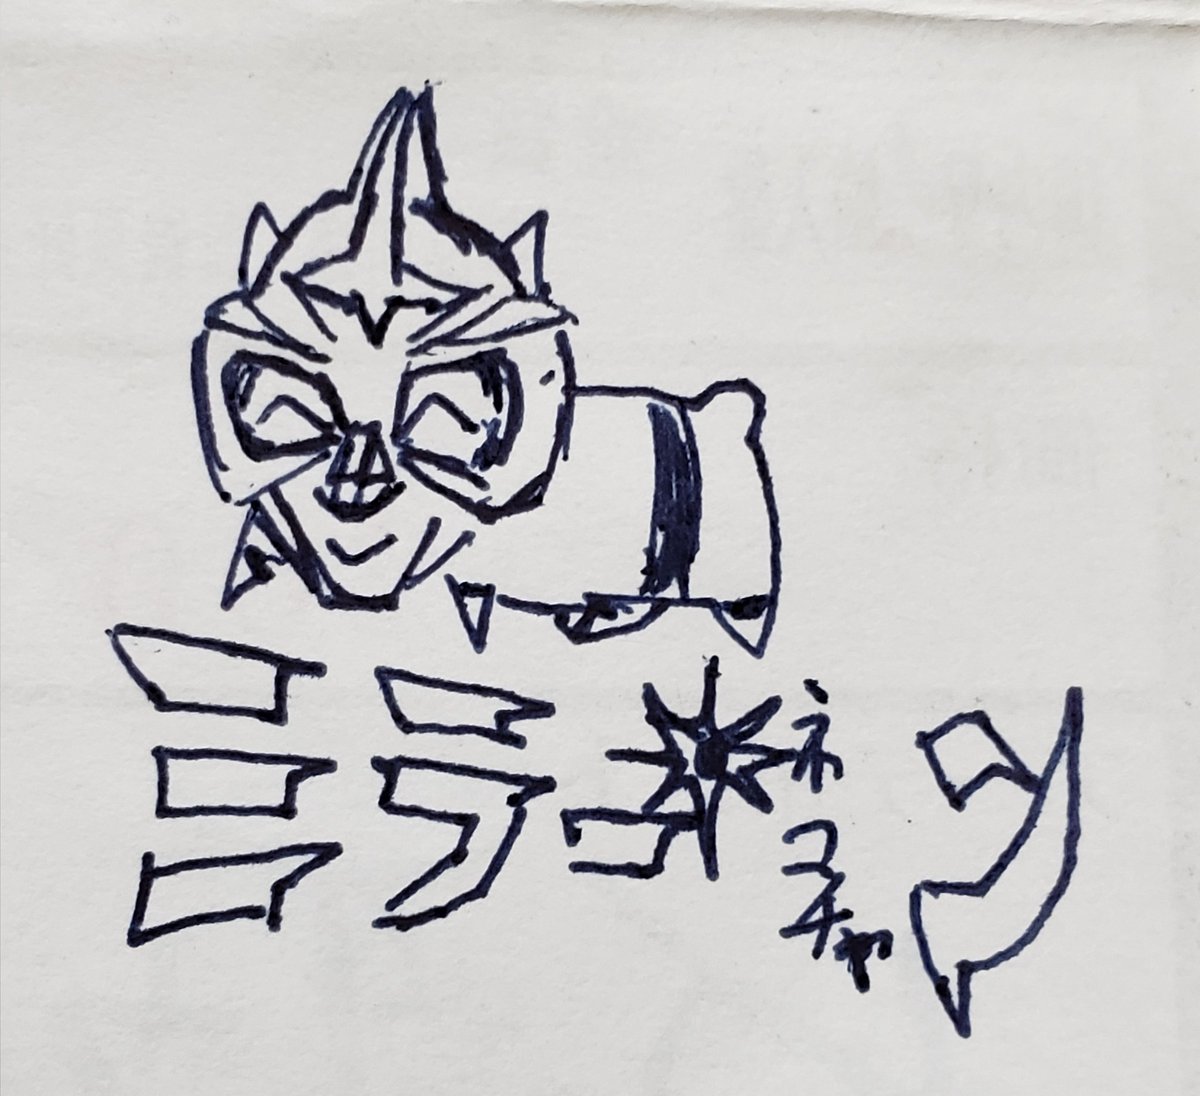 ミラネコチャン